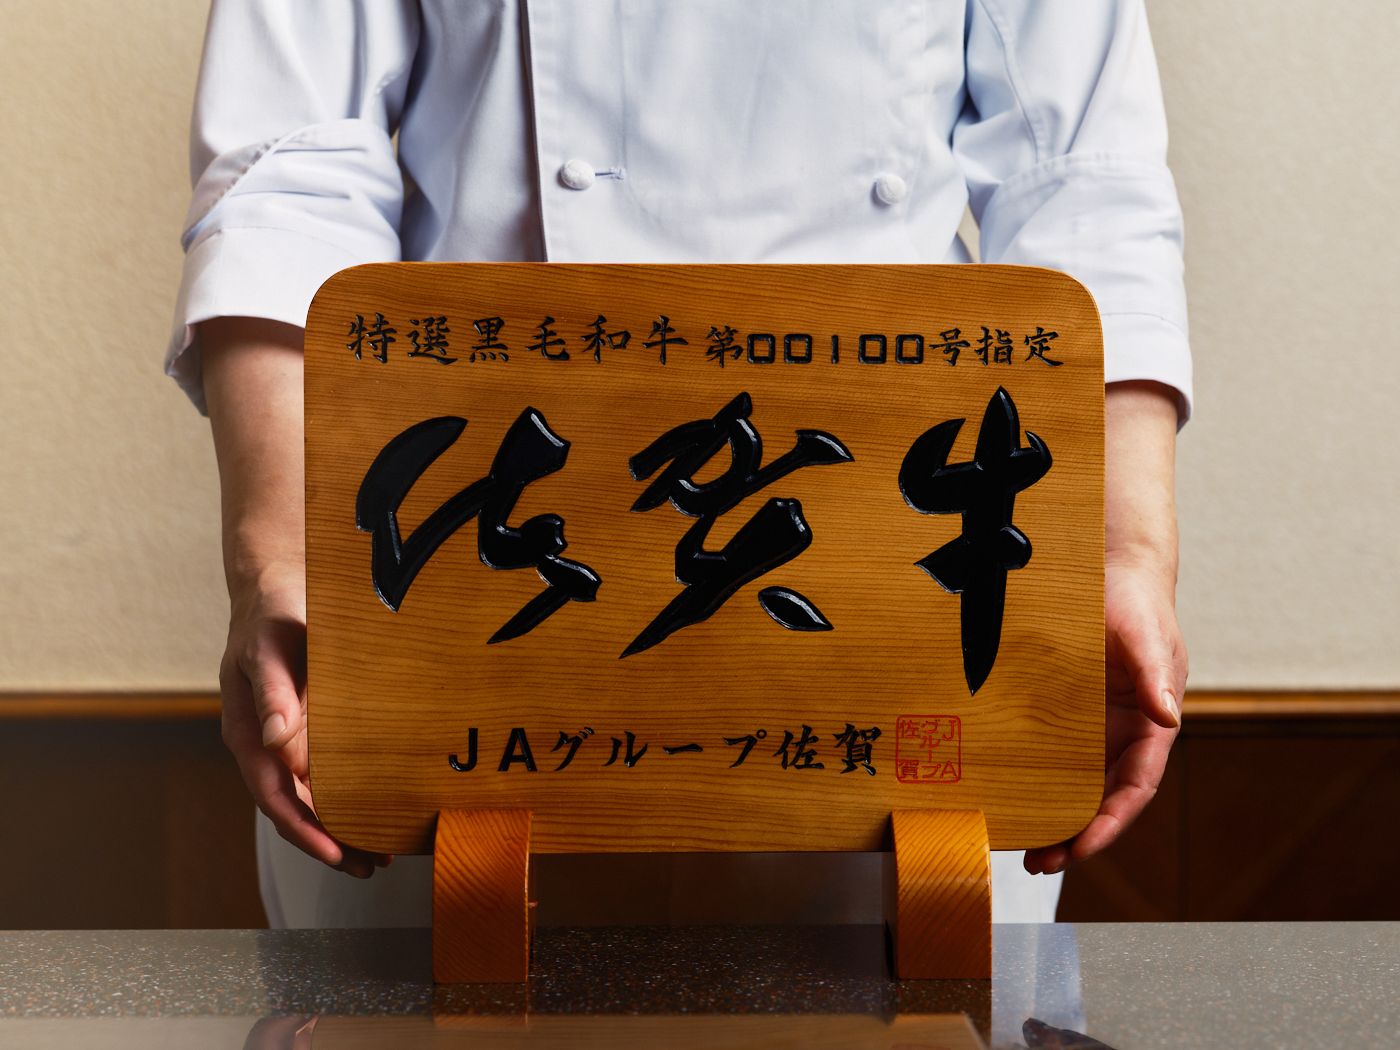 特選黒毛和牛 第00100号指定
佐賀牛
JAグループ佐賀
JA
グループ
佐賀